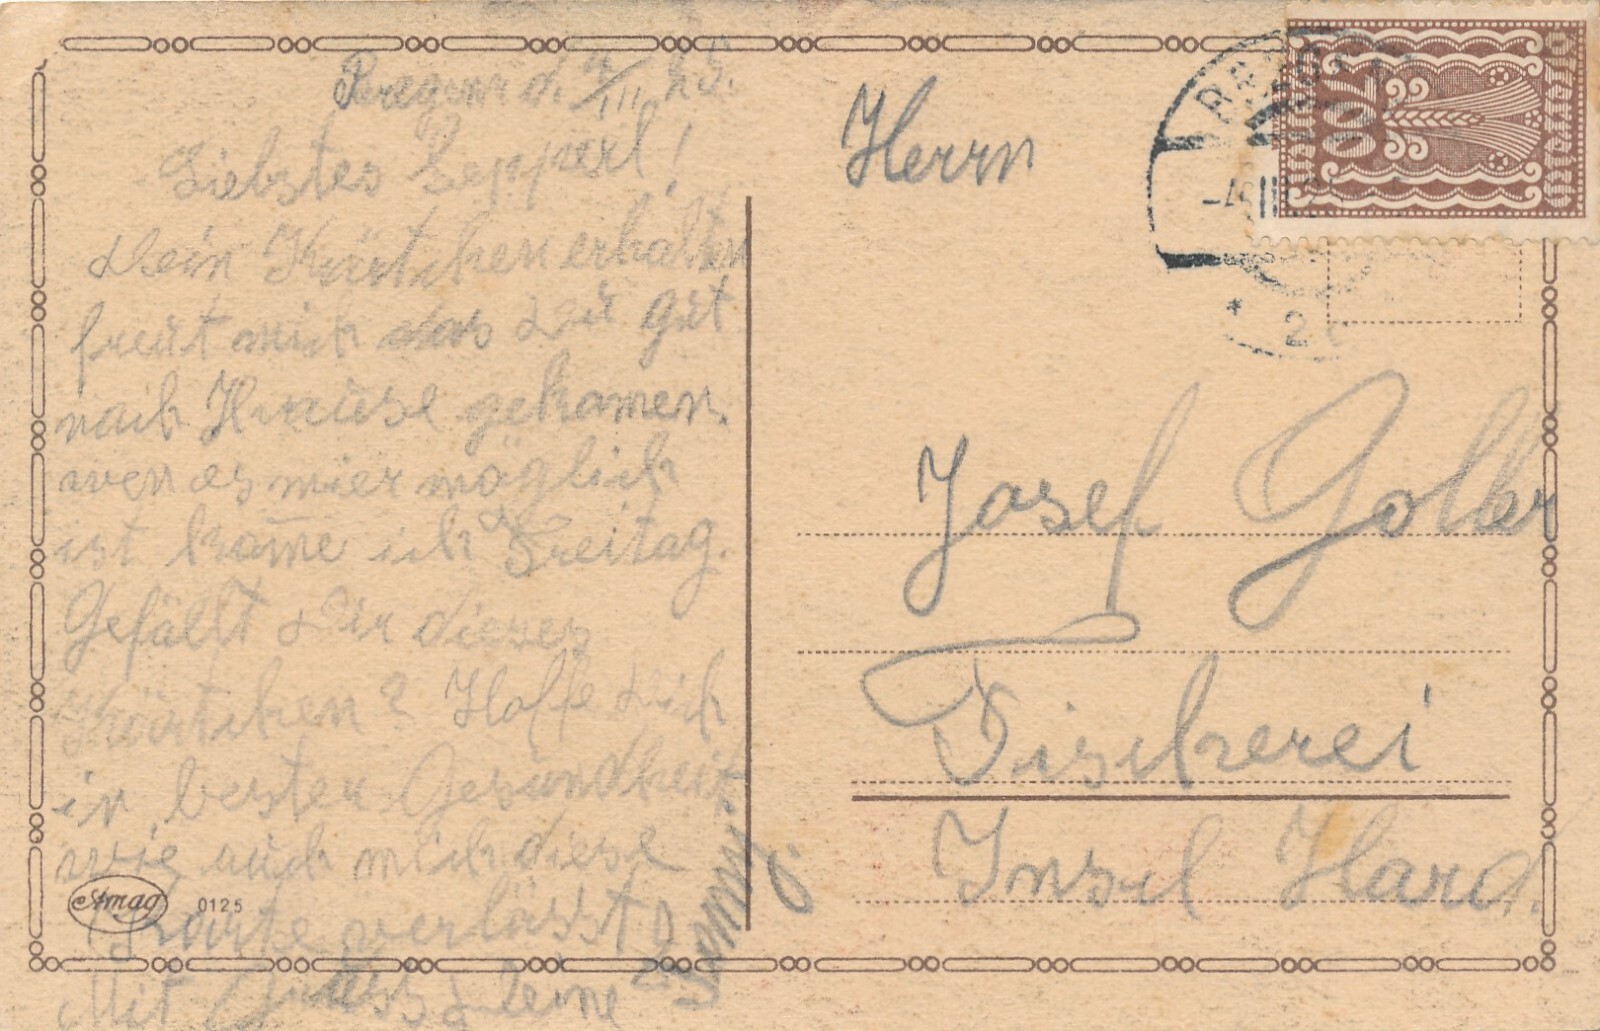 Bregenz d. 4/III 25.
Liebstes Sepperl!
Dein Kärtchen erhalten
freut mich das Du gut
nach Hause gekomen.
wen es mier möglich
ist kome ich Freitag.
Gefällt Dir dieses
Kärtchen? Hoffe Dich
in bester Gesundheit
wie auch mich diese
Karte verlässt
Mit Gruss Deine
Herrn
Josef
Fischerei
Insel Hard.
700
Amag 0125